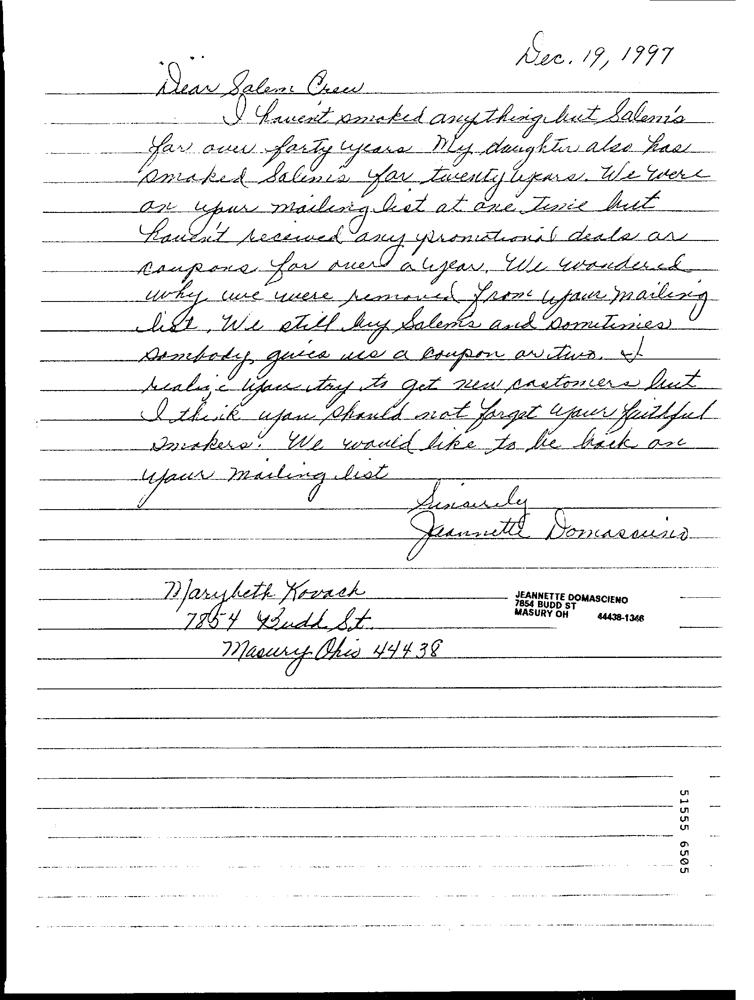 Dec. 19, 1997
Dear Salem Crew
I haven't smoked anything but Salem's
for over forty years My daughter also has
smoked Salem's for twenty years. We were
on your mailing list at one time but
haven't received any promotional deals or
coupons for over a year. We wondered
why we were removed from your mailing
list. We still buy Salems and sometimes
sombody gives us a coupon or two. I
realize you try to get new costomers but
I think you should not forget your faithful
smokers. We would like to be back on
your mailing list
Sincerely
Jeannette Domascieno
Marybeth Kovach
7854 Budd St.
Masury Ohio 44438
JEANNETTE DOMASCIENO
7854 BUDD ST
MASURY OH 44438-1346
51555 6505